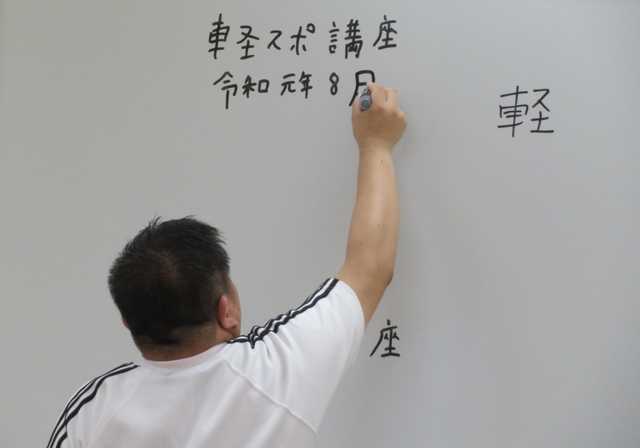 軽スポ講座
令和元年8月
軽
座